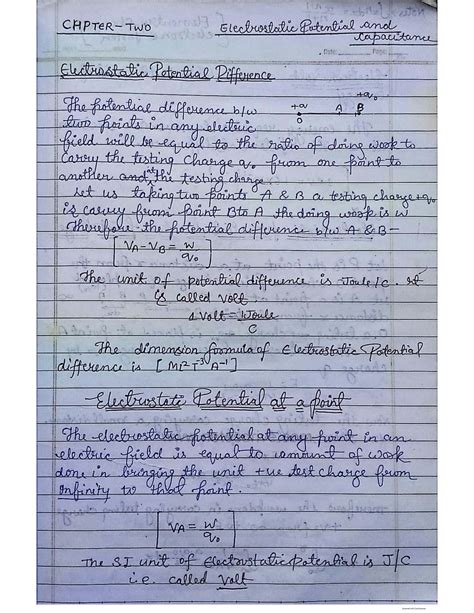 CHPTER-TWO
Electrostatic Potential and
Capacitance
Date: Page:
Electrostatic Potential Difference
The potential difference b/w +Q A B +q₀
two points in any electric O
field will be equal to the ratio of doing work to
carry the testing charge q₀ from one point to
another and the testing charge
Let us taking two points A & B a testing charge +q₀
is carry from point B to A the doing work is W
Therefore the potential difference b/w A & B -
[V_A - V_B = W/q₀]
The unit of potential difference is Joule/C. It
is called volt
1 Volt = 1 Joule
C
The dimension formula of Electrostatic Potential
difference is [ML²T⁻³A⁻¹]
Electrostatic Potential at a point
The electrostatic potential at any point in an
electric field is equal to amount of work
done in bringing the unit +ve test charge from
Infinity to that point.
[V_A = W/q₀]
The SI unit of Electrostatic potential is J/C
i.e. called Volt